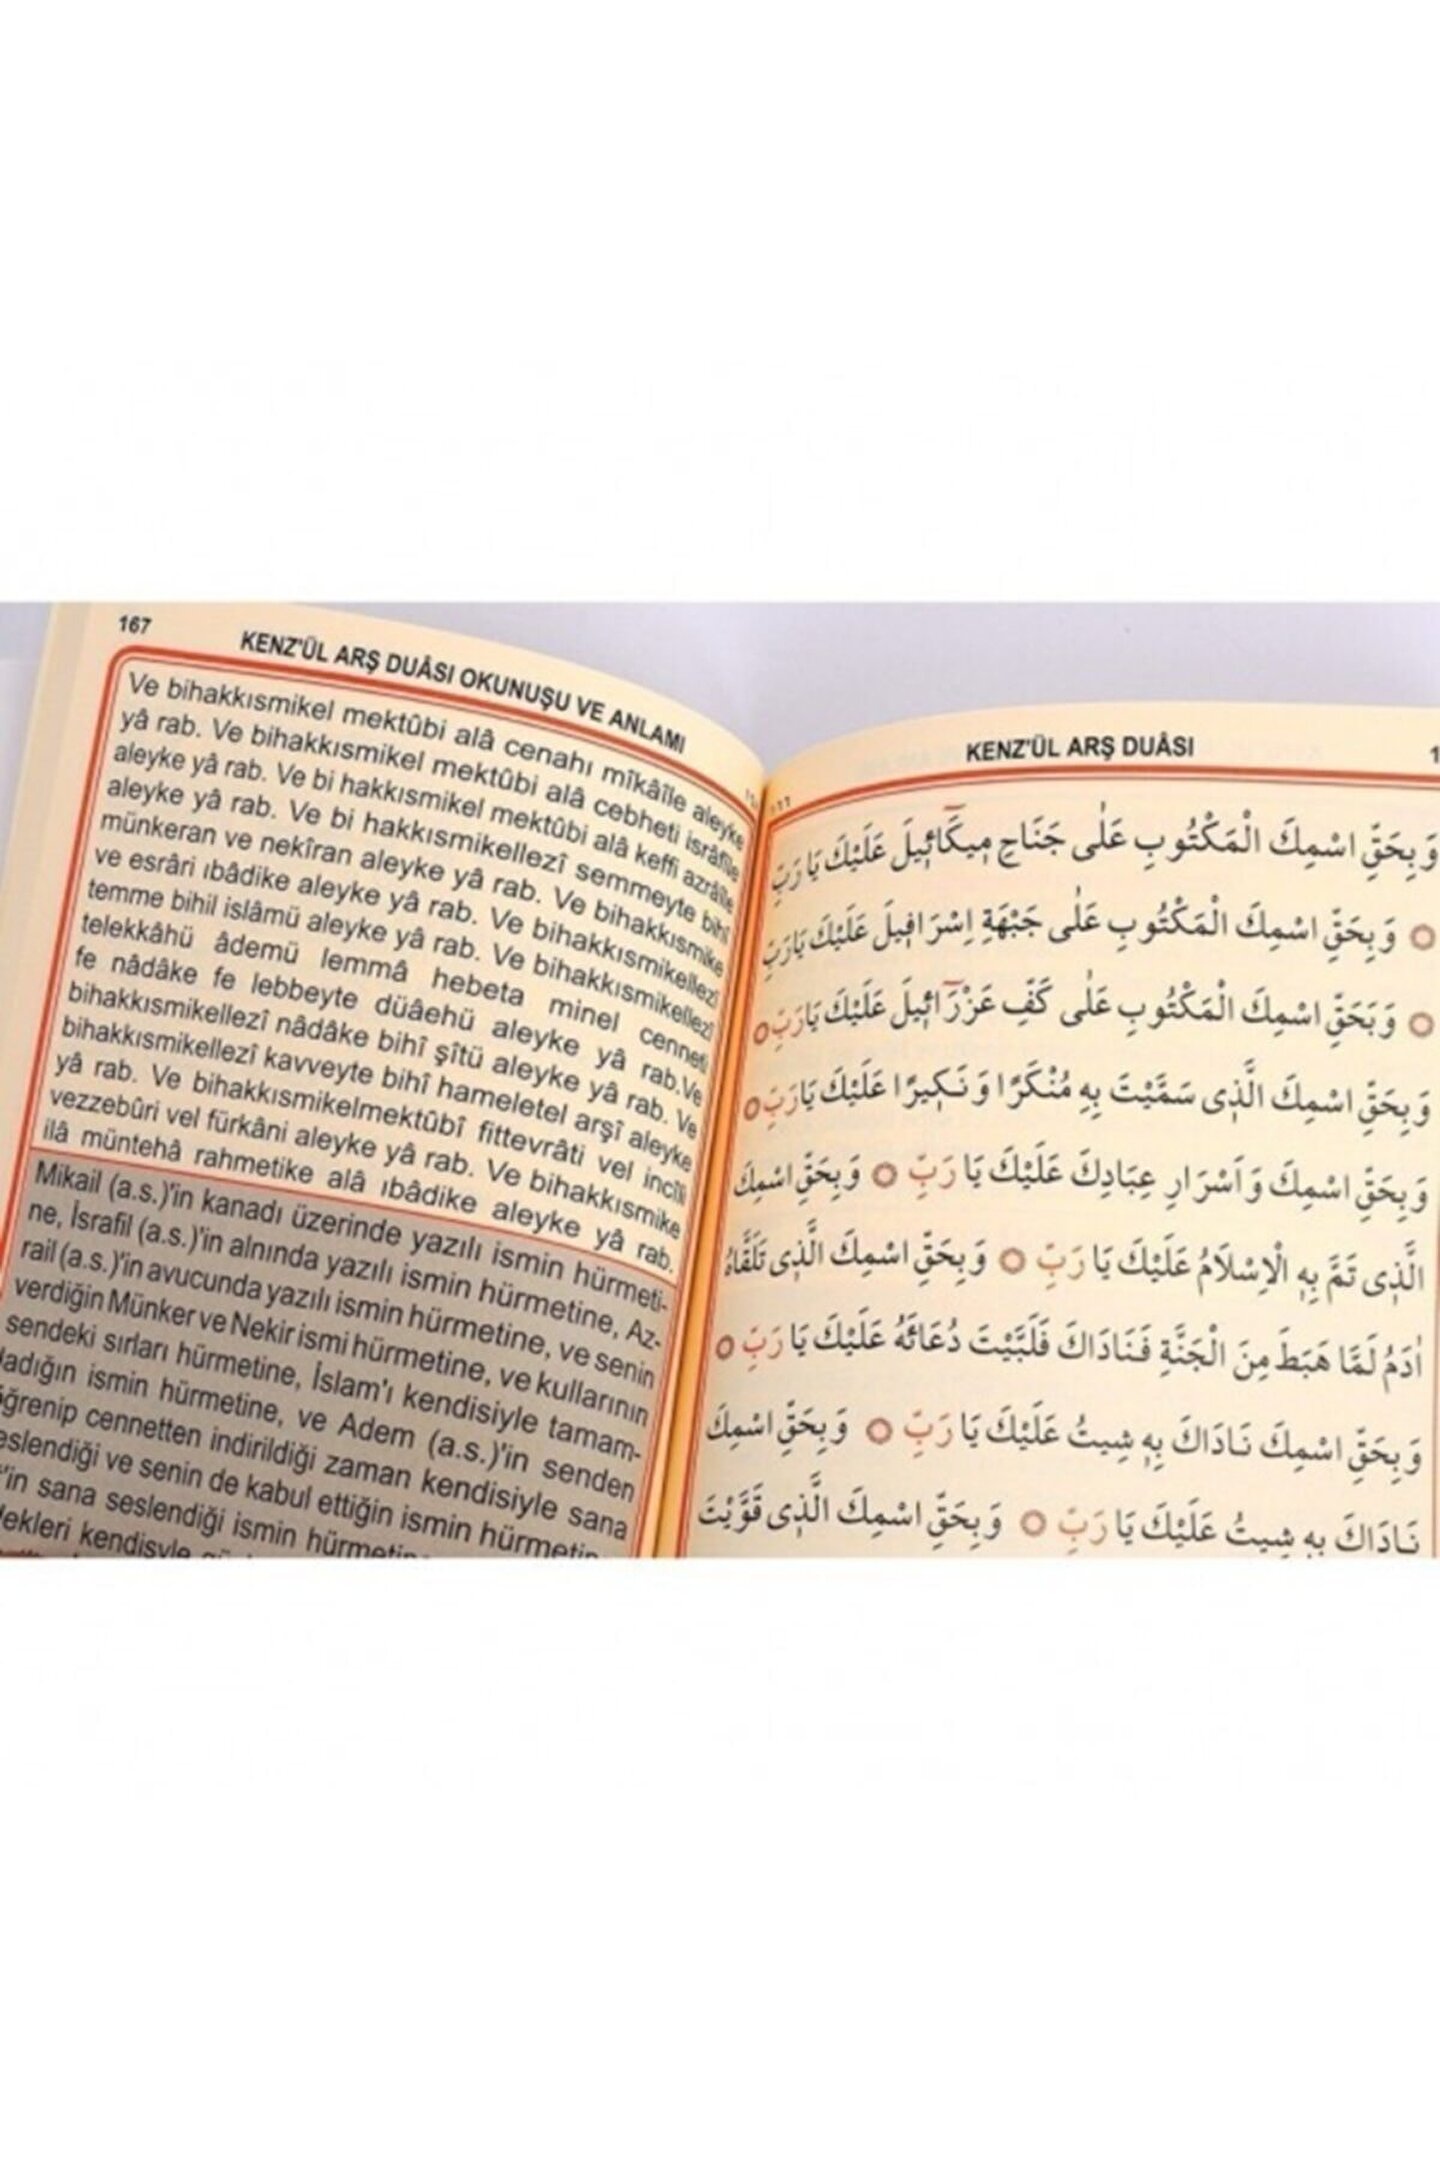 167
KENZ'ÜL ARŞ DUÂSI OKUNUŞU VE ANLAMI
Ve bihakkısmikel mektûbi alâ cenahı mîkâîle aleyke
yâ rab. Ve bihakkısmikel mektûbi alâ cebheti isrâfîle
aleyke yâ rab. Ve bi hakkısmikel mektûbi alâ keffi azrâîle
aleyke yâ rab. Ve bi hakkısmikellezî semmeyte bihî
münkeran ve nekîran aleyke yâ rab. Ve bihakkısmike
ve esrâri ıbâdike aleyke yâ rab. Ve bihakkısmikellezî
temme bihil islâmü aleyke yâ rab. Ve bihakkısmikellezî
telekkâhü âdemü lemmâ hebeta minel cenneti
fe nâdâke fe lebbeyte düâehü aleyke yâ rab.Ve
bihakkısmikellezî nâdâke bihî şîtü aleyke yâ rab. Ve
bihakkısmikellezî kavveyte bihî hameletel arşî aleyke
yâ rab. Ve bihakkısmikelmektûbî fittevrâti vel incîli
vezzebûri vel fürkâni aleyke yâ rab. Ve bihakkısmike
ilâ müntehâ rahmetike alâ ıbâdike aleyke yâ rab.
Mikail (a.s.)'in kanadı üzerinde yazılı ismin hürmeti-
ne, İsrafil (a.s.)'in alnında yazılı ismin hürmetine, Az-
rail (a.s.)'in avucunda yazılı ismin hürmetine, ve senin
verdiğin Münker ve Nekir ismi hürmetine, ve kullarının
sendeki sırları hürmetine, İslam'ı kendisiyle tamam-
ladığın ismin hürmetine, ve Adem (a.s.)'in senden
öğrenip cennetten indirildiği zaman kendisiyle sana
seslendiği ve senin de kabul ettiğin ismin hürmetine
'in sana seslendiği ismin hürmetine
kendisiyle
KENZ'ÜL ARŞ DUÂSI
وَبِحَقِّ اسْمِكَ الْمَكْتُوبِ عَلٰى جَنَاحِ مٖيكَٓائٖيلَ عَلَيْكَ يَا رَبِّ
۝ وَبِحَقِّ اسْمِكَ الْمَكْتُوبِ عَلٰى جَبْهَةِ اِسْرَافٖيلَ عَلَيْكَ يَارَبِّ
۝ وَبَحَقِّ اسْمِكَ الْمَكْتُوبِ عَلٰى كَفِّ عَزْرَٓائٖيلَ عَلَيْكَ يَارَبِّ ۝
وَبِحَقِّ اسْمِكَ الَّذٖى سَمَّيْتَ بِهٖ مُنْكَرًا وَنَكٖيرًا عَلَيْكَ يَارَبِّ ۝
وَبِحَقِّ اسْمِكَ وَاَسْرَارِ عِبَادِكَ عَلَيْكَ يَا رَبِّ ۝ وَبِحَقِّ اسْمِكَ
الَّذٖى تَمَّ بِهِ الْاِسْلَامُ عَلَيْكَ يَا رَبِّ ۝ وَبِحَقِّ اسْمِكَ الَّذٖى تَلَقَّاهُ
اٰدَمُ لَمَّا هَبَطَ مِنَ الْجَنَّةِ فَنَادَاكَ فَلَبَّيْتَ دُعَائَهُ عَلَيْكَ يَا رَبِّ ۝
وَبِحَقِّ اسْمِكَ نَادَاكَ بِهٖ شٖيتُ عَلَيْكَ يَا رَبِّ ۝ وَبِحَقِّ اسْمِكَ
نَادَاكَ بِهٖ شٖيتُ عَلَيْكَ يَا رَبِّ ۝ وَبِحَقِّ اسْمِكَ الَّذٖى قَوَّيْتَ